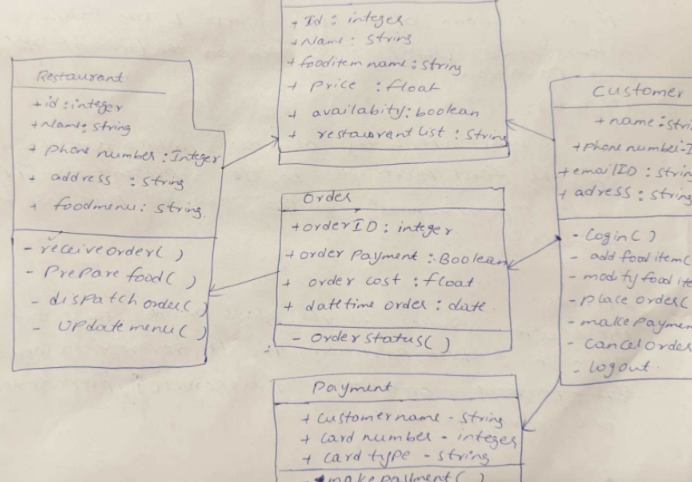 + Id : integer
+ Name : string
+ fooditem name : string
+ price : float
+ availabity : boolean
+ restaurant list : string
Restaurant
+ id : integer
+ Name : string
+ phone number : Integer
+ address : string
+ foodmenu : string
- receive order ( )
- prepare food ( )
- dispatch order ( )
- update menu ( )
Order
+ order ID : integer
+ order payment : Boolean
+ order cost : float
+ datetime order : date
- Order status ( )
Customer
+ name : stri
+ phone number - I
+ email ID : strin
+ adress : string
- login ( )
- add food item (
- modify food ite
- place order (
- make paymen
- cancel order
- logout
Payment
+ customer name - string
+ card number - integer
+ card type - string
- make payment ( )